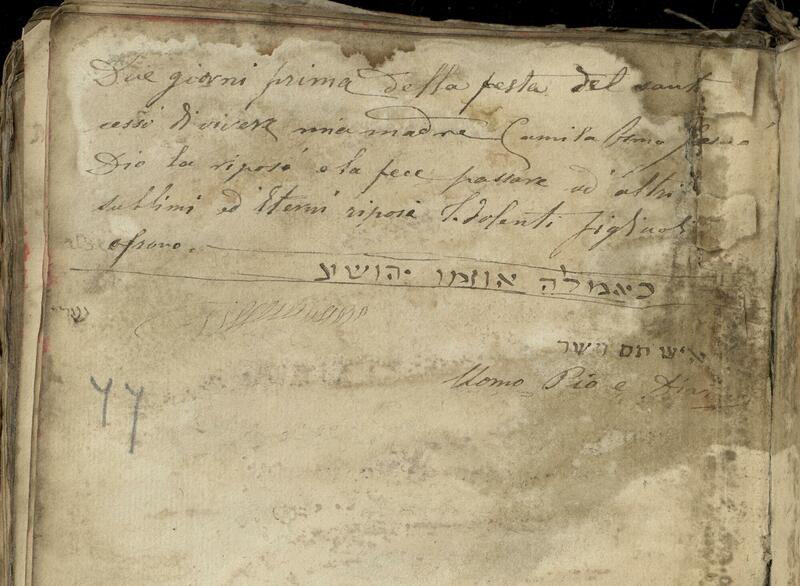 Due giorni prima della festa del sant
cessò di vivere mia madre Camila Osmo
Dio la riposò e la fece passare ad altri
sublimi ed Eterni riposi I dolenti figliuoli
כאמלה אוזמו יהושע
איש תם וישר
Uomo Pio e
47